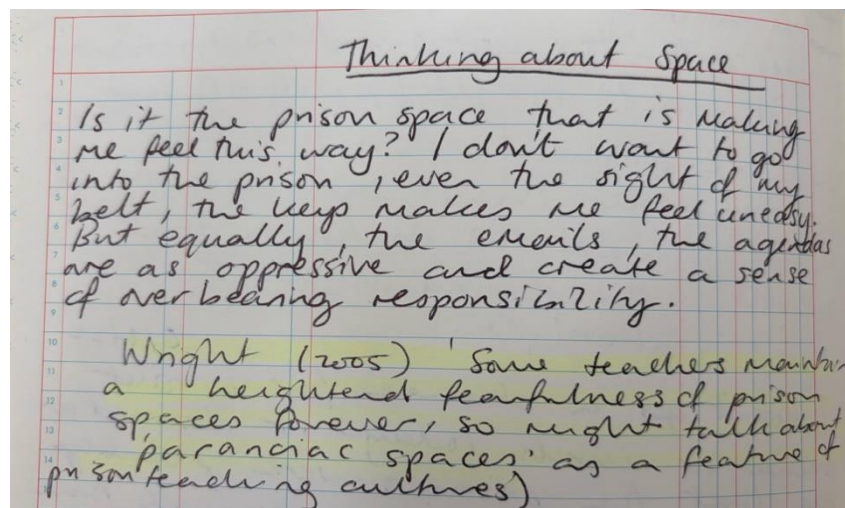 Thinking about Space
Is it the prison space that is making
me feel this way? I don't want to go
into the prison, even the sight of my
belt, the keys makes me feel uneasy.
But equally, the emails, the agendas
are as oppressive and create a sense
of overbearing responsibility.
Wright (2005) 'Some teachers maintain
a heightend fearfulness of prison
spaces forever, so might talk about
'paranoiac spaces' as a feature of
prison teaching cultures)
1
2
3
4
5
6
7
8
9
10
11
12
13
14